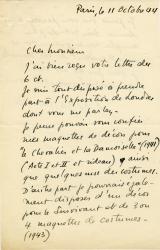 Paris, le 11 Octobre
Cher Monsieur
J'ai bien reçu votre lettre du
6 ct.
Je suis tout disposé à prendre
part à l'Exposition de Londres
dont vous me parlez.
Je pense pouvoir vous confier
mes maquettes de décor pour
le Chevalier et la Damoiselle (1941)
(Acte I et II et rideau) ainsi
que quelques unes des costumes.
D'autre part je pourrais égale-
ment disposer d'un décor
pour le survivant et de 3 ou
4 maquettes de costumes.
(1943)